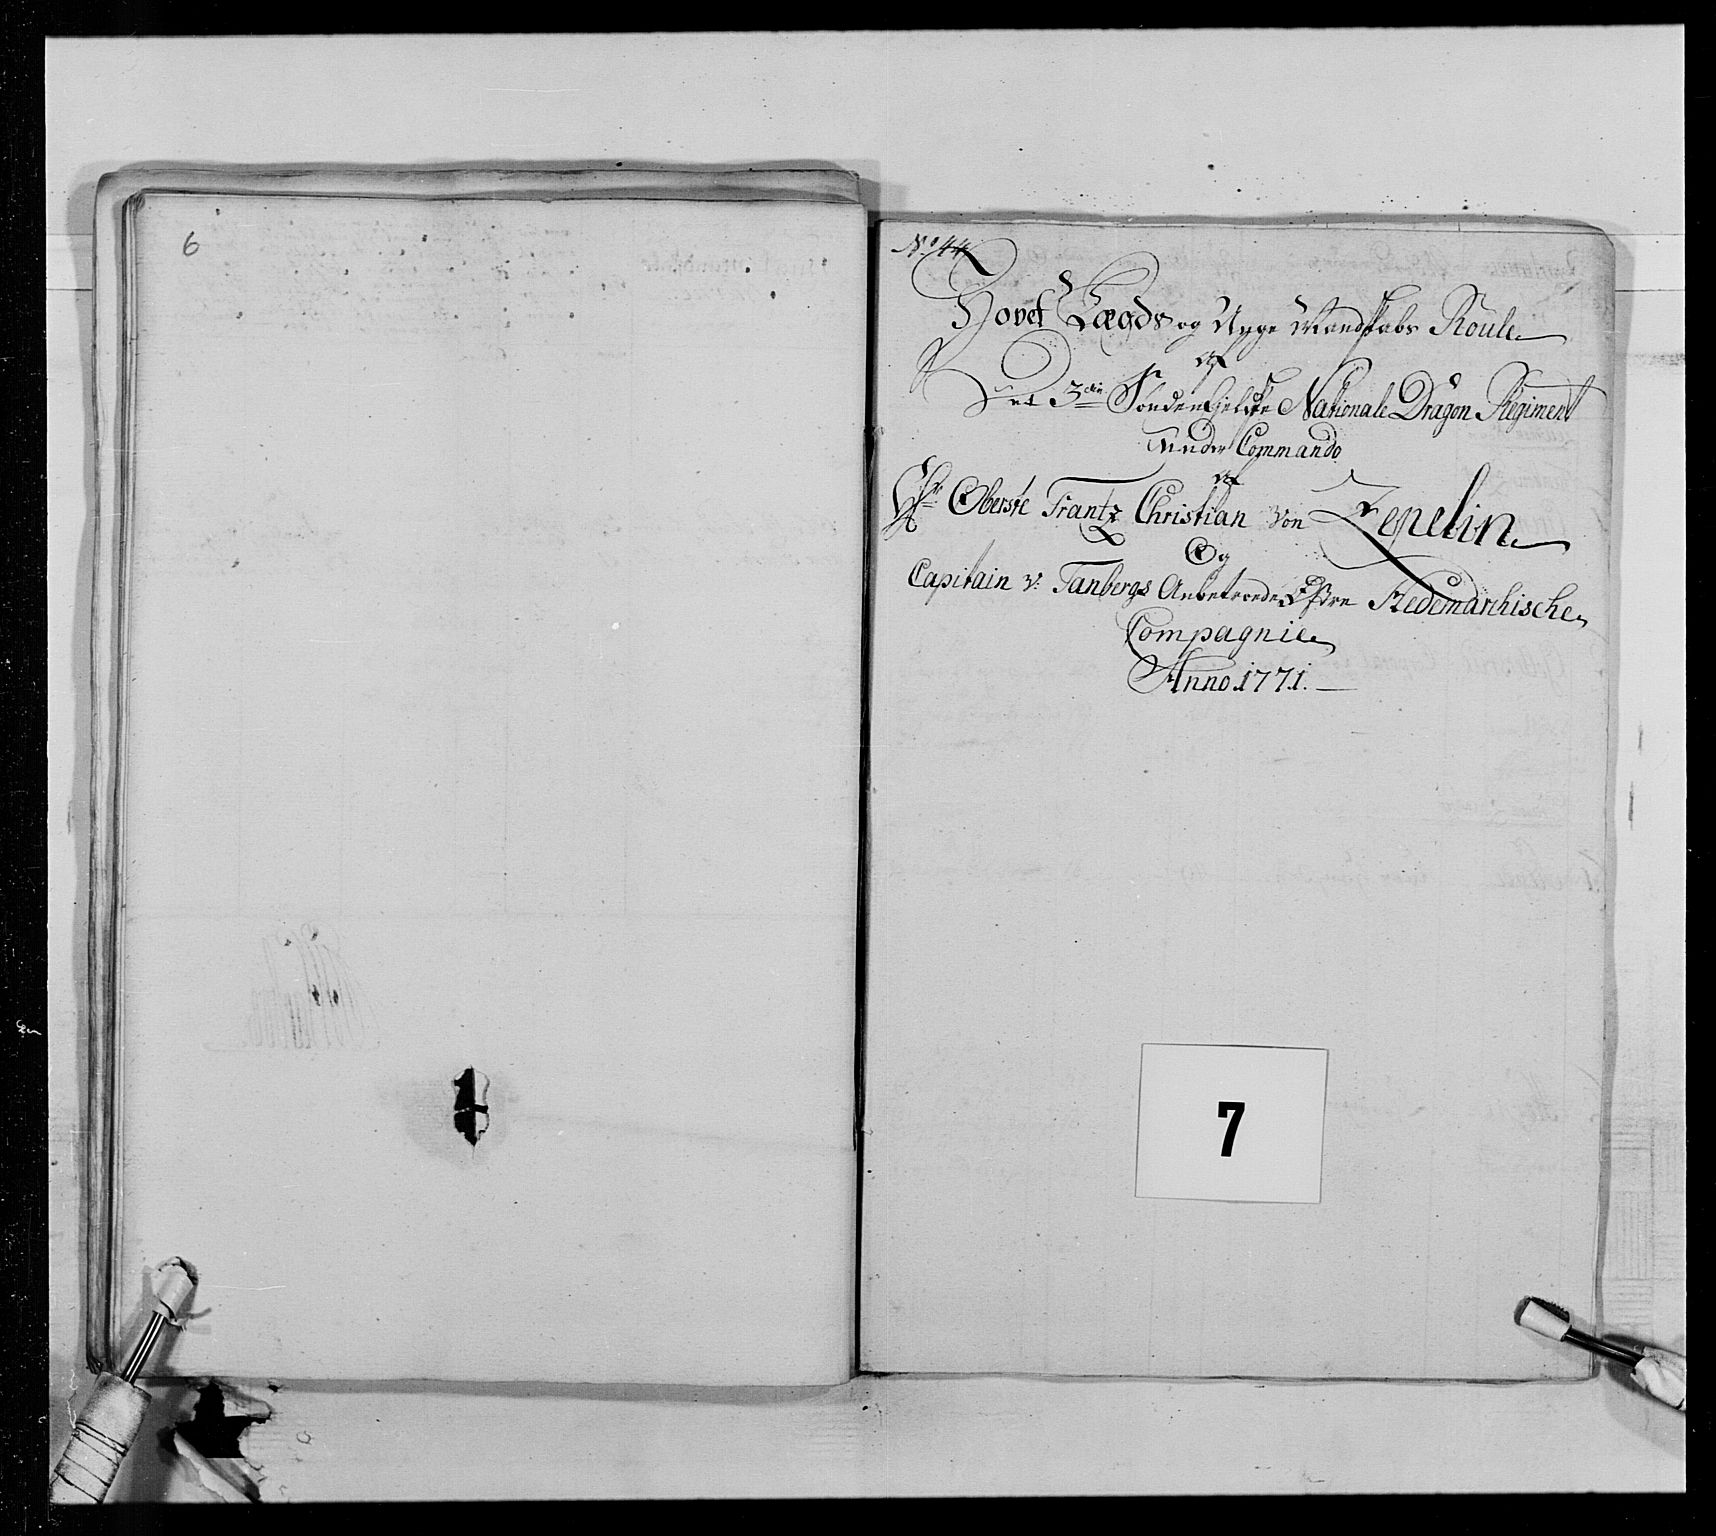 6
No 44
Hovet Lægds og Unge Mandskabs Roule
af
Det 3die Søndenfieldske Nationale Dragon Regiment
Under Commando
af
Hr Oberste Frantz Christian von Zepelin
Og
Capitain v: Tanbergs Anbetroede Østre Hedemarchische
Compagnie
Anno 1771.
7